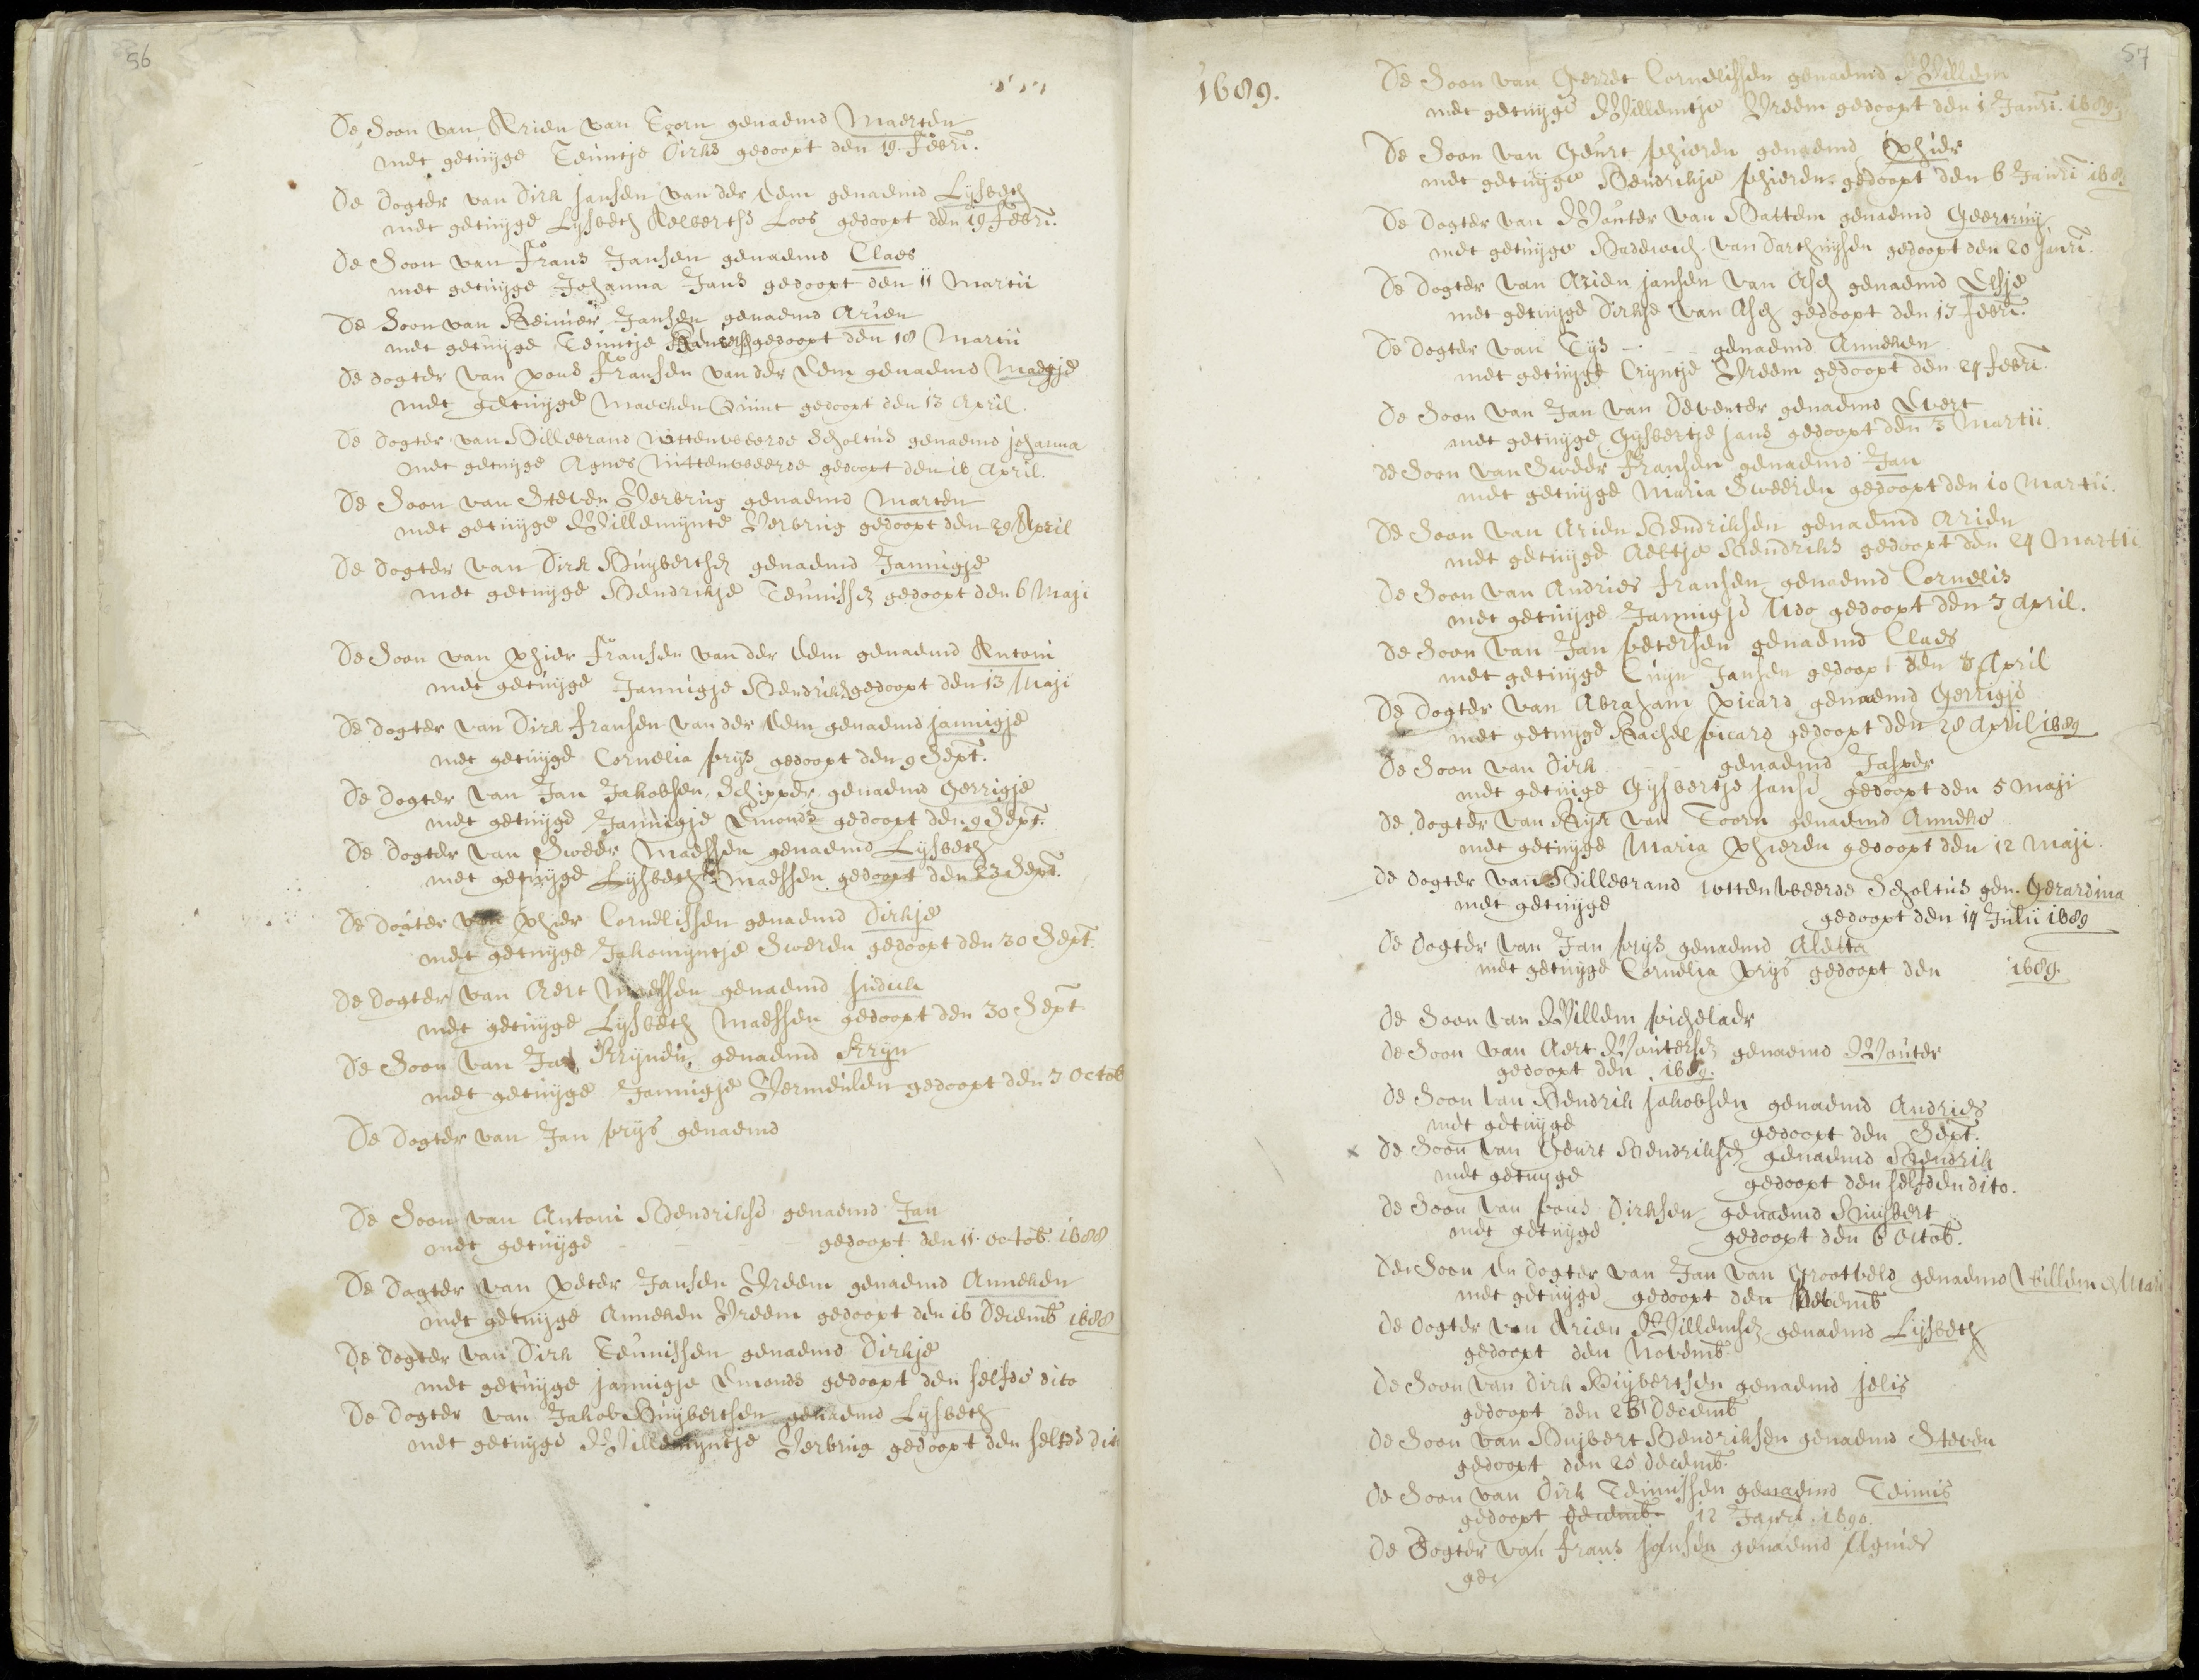 56
De Soon van Arien van Toorn genaemd Maerten
met getuijge Teuntje Dirks gedoopt den 19 Febri.
De dogter van Dirk Jansen van der Eem genaemd Lijsbeth
met getuijge Lijsbeth Aelberths Loos gedoopt den 19 febri.
De Soon van frans Jansen genaemd Claes
met getuijge Johanna Jans gedoopt den 11 Martii
De Soon van Reinier Jansen genaemd Arien
met getuijge Teuntje gedoopt den 18 Martii
De dogter van pous fransen van der Eem genaemd Maegje
met getuijge Maechen Quint gedoopt den 13 April.
De dogter van Hillebrand Wttenweerde Scholtus genaemd johanna
met getuijge Agnes Wttenweerde gedoopt den 16 April.
De Soon van Steven Verbrug genaemd Marten
met getuijge Willemijnte Verbrug gedoopt den 29 April
De dogter van Dirk Huijbertsz genaemd Jannigje
met getuijge Hendrikje Teunissz gedoopt den 6 Maji
De Soon van phier fransen van der Eem genaemd Antoni
met getuijge Jannigje Hendriks gedoopt den 13 Maji
De dogter van Dirk fransen van der Eem genaemd jannigje
met getuijge Cornelia prijs gedoopt den 9 Sept.
De dogter van Jan Jakobsen Schipper genaemd Gerrigje
met getuijge Jannigje Emonds gedoopt den 9 Sept.
De dogter van Sweer Maessen genaemd Lijsbeth
met getuijge Lijsbeth Maessen gedoopt den 23 Sept.
De dogter van phier Cornelissen genaemd Dirkje
met getuijge Jakomijntje Sweren gedoopt den 30 Sept.
De dogter van Aert Maessen genaemd judich
met getuijge Lijsbeth Maessen gedoopt den 30 Sept
De Soon van Jan Krijnen genaemd Krijn
met getuijge Jannigje Vermeulen gedoopt den 7 Octob
De dogter van Jan prijs genaemd
De Soon van Antoni Hendrikse genaemd Jan
met getuijge - - - gedoopt den 11 octob. 1688
De Dogter van peter Jansen Vreem genaemd Anneken
met getuijge Anneken Vreem gedoopt den 16 Decemb 1688
De dogter van Dirk Teunissen genaemd Dirkje
met getuijge jannigje Emonds gedoopt den selfde dito
De dogter van Jakob Huijbertsen genaemd Lijsbeth
met getuijge Willemijntje Verbrug gedoopt den selfde dito
57
1689.
De Soon van Gerret Cornelissen genaemd Willem
met getuijge Willemtje Vreem gedoopt den 1 Janri. 1689.
De Soon van Geurt phieren genaemd phier
met getuijge Hendrikje phieren gedoopt den 6 Janri 1689
De dogter van Wouter van Hattem genaemd Geertruij
met getuijge Hadewich van Darthuijsen gedoopt den 20 janri.
De dogter van Arien jansen van Asch genaemd Elsje
met getuijge Dirkje van Asch gedoopt den 17 febri.
De dogter van Tijs - - - genaemd Anneken
met getuijge Crijntje Vreem gedoopt den 24 febri.
De Soon van Jan van Deventer genaemd Evert
met getuijge Gijsbertje jans gedoopt den 3 Martii
de Soon van Sweer fransen genaemd Jan
met getuijge Maria Sweeren gedoopt den 10 Martii.
De Soon van Arien Hendriksen genaemd Arien
met getuijge Aeltje Hendriks gedoopt den 24 Martii
De Soon van Andries fransen genaemd Cornelis
met getuijge Jannigje Udo gedoopt den 7 April.
De Soon van Jan petersen genaemd Claes
met getuijge Crijn Jansen gedoopt den 8 April
De Dogter van Abraham picard genaemd Gerrigje
met getuijge Rachel picard gedoopt den 28 April 1689
De Soon van Dirk - - genaemd Jasper
met getuige Gijsbertje janse gedoopt den 5 Maji
de dogter van Rijk van Toorn genaemd Anneke
met getuijge Maria phieren gedoopt den 12 Maji.
de dogter van Hillebrand Wttenweerde Scholtus gen. Gerardina
met getuijge gedoopt den 14 Julii 1689
De dogter van Jan prijs genaemd Aletta
met getuijge Cornelia prijs gedoopt den 1689.
de Soon van Willem pichelaer
de Soon van Aert Woutersz genaemd Wouter
gedoopt den 1689.
de Soon van Hendrik jakobsen genaemd Andries
met getuijge gedoopt den Sept.
x de Soon van Geurt Hendriksz genaemd Hendrik
met getuyge gedoopt den selfden dito.
de Soon van pous Dirksen genaemd Huijbert
met getuijge gedoopt den 6 Octob.
De Soon en dogter van Jan van Grootveld genaemd Willem & Mari
met getuijge gedoopt den Novemb
de dogter van Arien Willemsz genaemd Lijsbeth
gedoopt den Novemb.
de Soon van dirk Huijbertsen genaemd jelis
gedoopt den 26 Decemb
de Soon van Huijbert Hendriksen genaemd Steven
gedoopt den 26 decemb.
de Soon van Dirk Teunissen genaemd Teunis
gedoopt decemb. 12 Janri. 1690.
de Dogter van frans jansen genaemd Agnies
ge